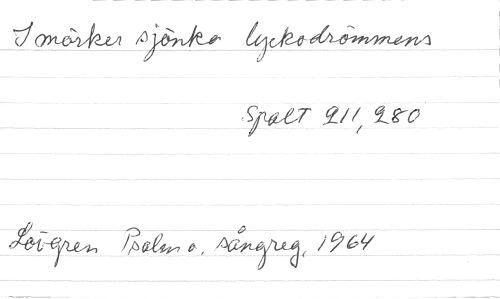 I mörker sjönko lyckodrömmens
Spalt 211, 280
Lövgren Psalm o. sångreg. 1964